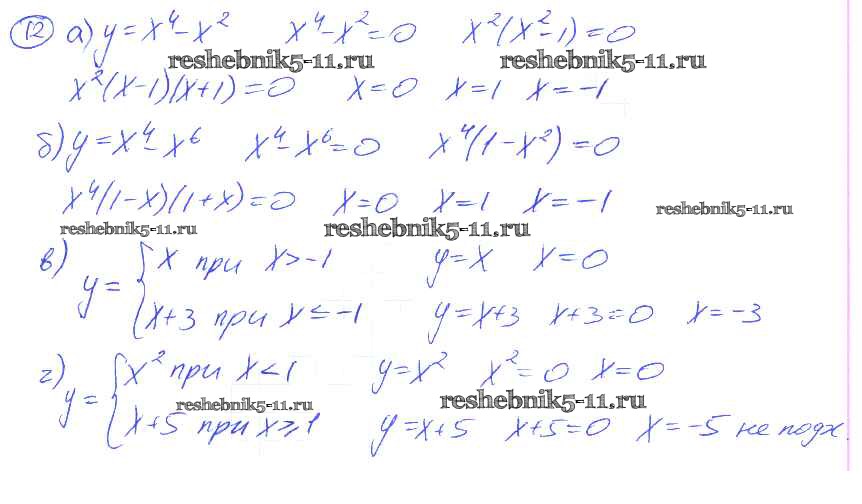 12 а) y = x⁴ - x²   x⁴ - x² = 0   x²(x² - 1) = 0
reshebnik5-11.ru   reshebnik5-11.ru
x²(x-1)(x+1) = 0   x = 0   x = 1   x = -1
б) y = x⁴ - x⁶   x⁴ - x⁶ = 0   x⁴(1 - x²) = 0
x⁴(1-x)(1+x) = 0   x = 0   x = 1   x = -1   reshebnik5-11.ru
reshebnik5-11.ru   reshebnik5-11.ru
в) y = { x при x > -1   y = x   x = 0
x+3 при x ≤ -1   y = x+3   x+3 = 0   x = -3
г) y = { x² при x < 1   y = x²   x² = 0   x = 0
reshebnik5-11.ru   reshebnik5-11.ru
x+5 при x ⩾ 1   y = x+5   x+5 = 0   x = -5 не подх.